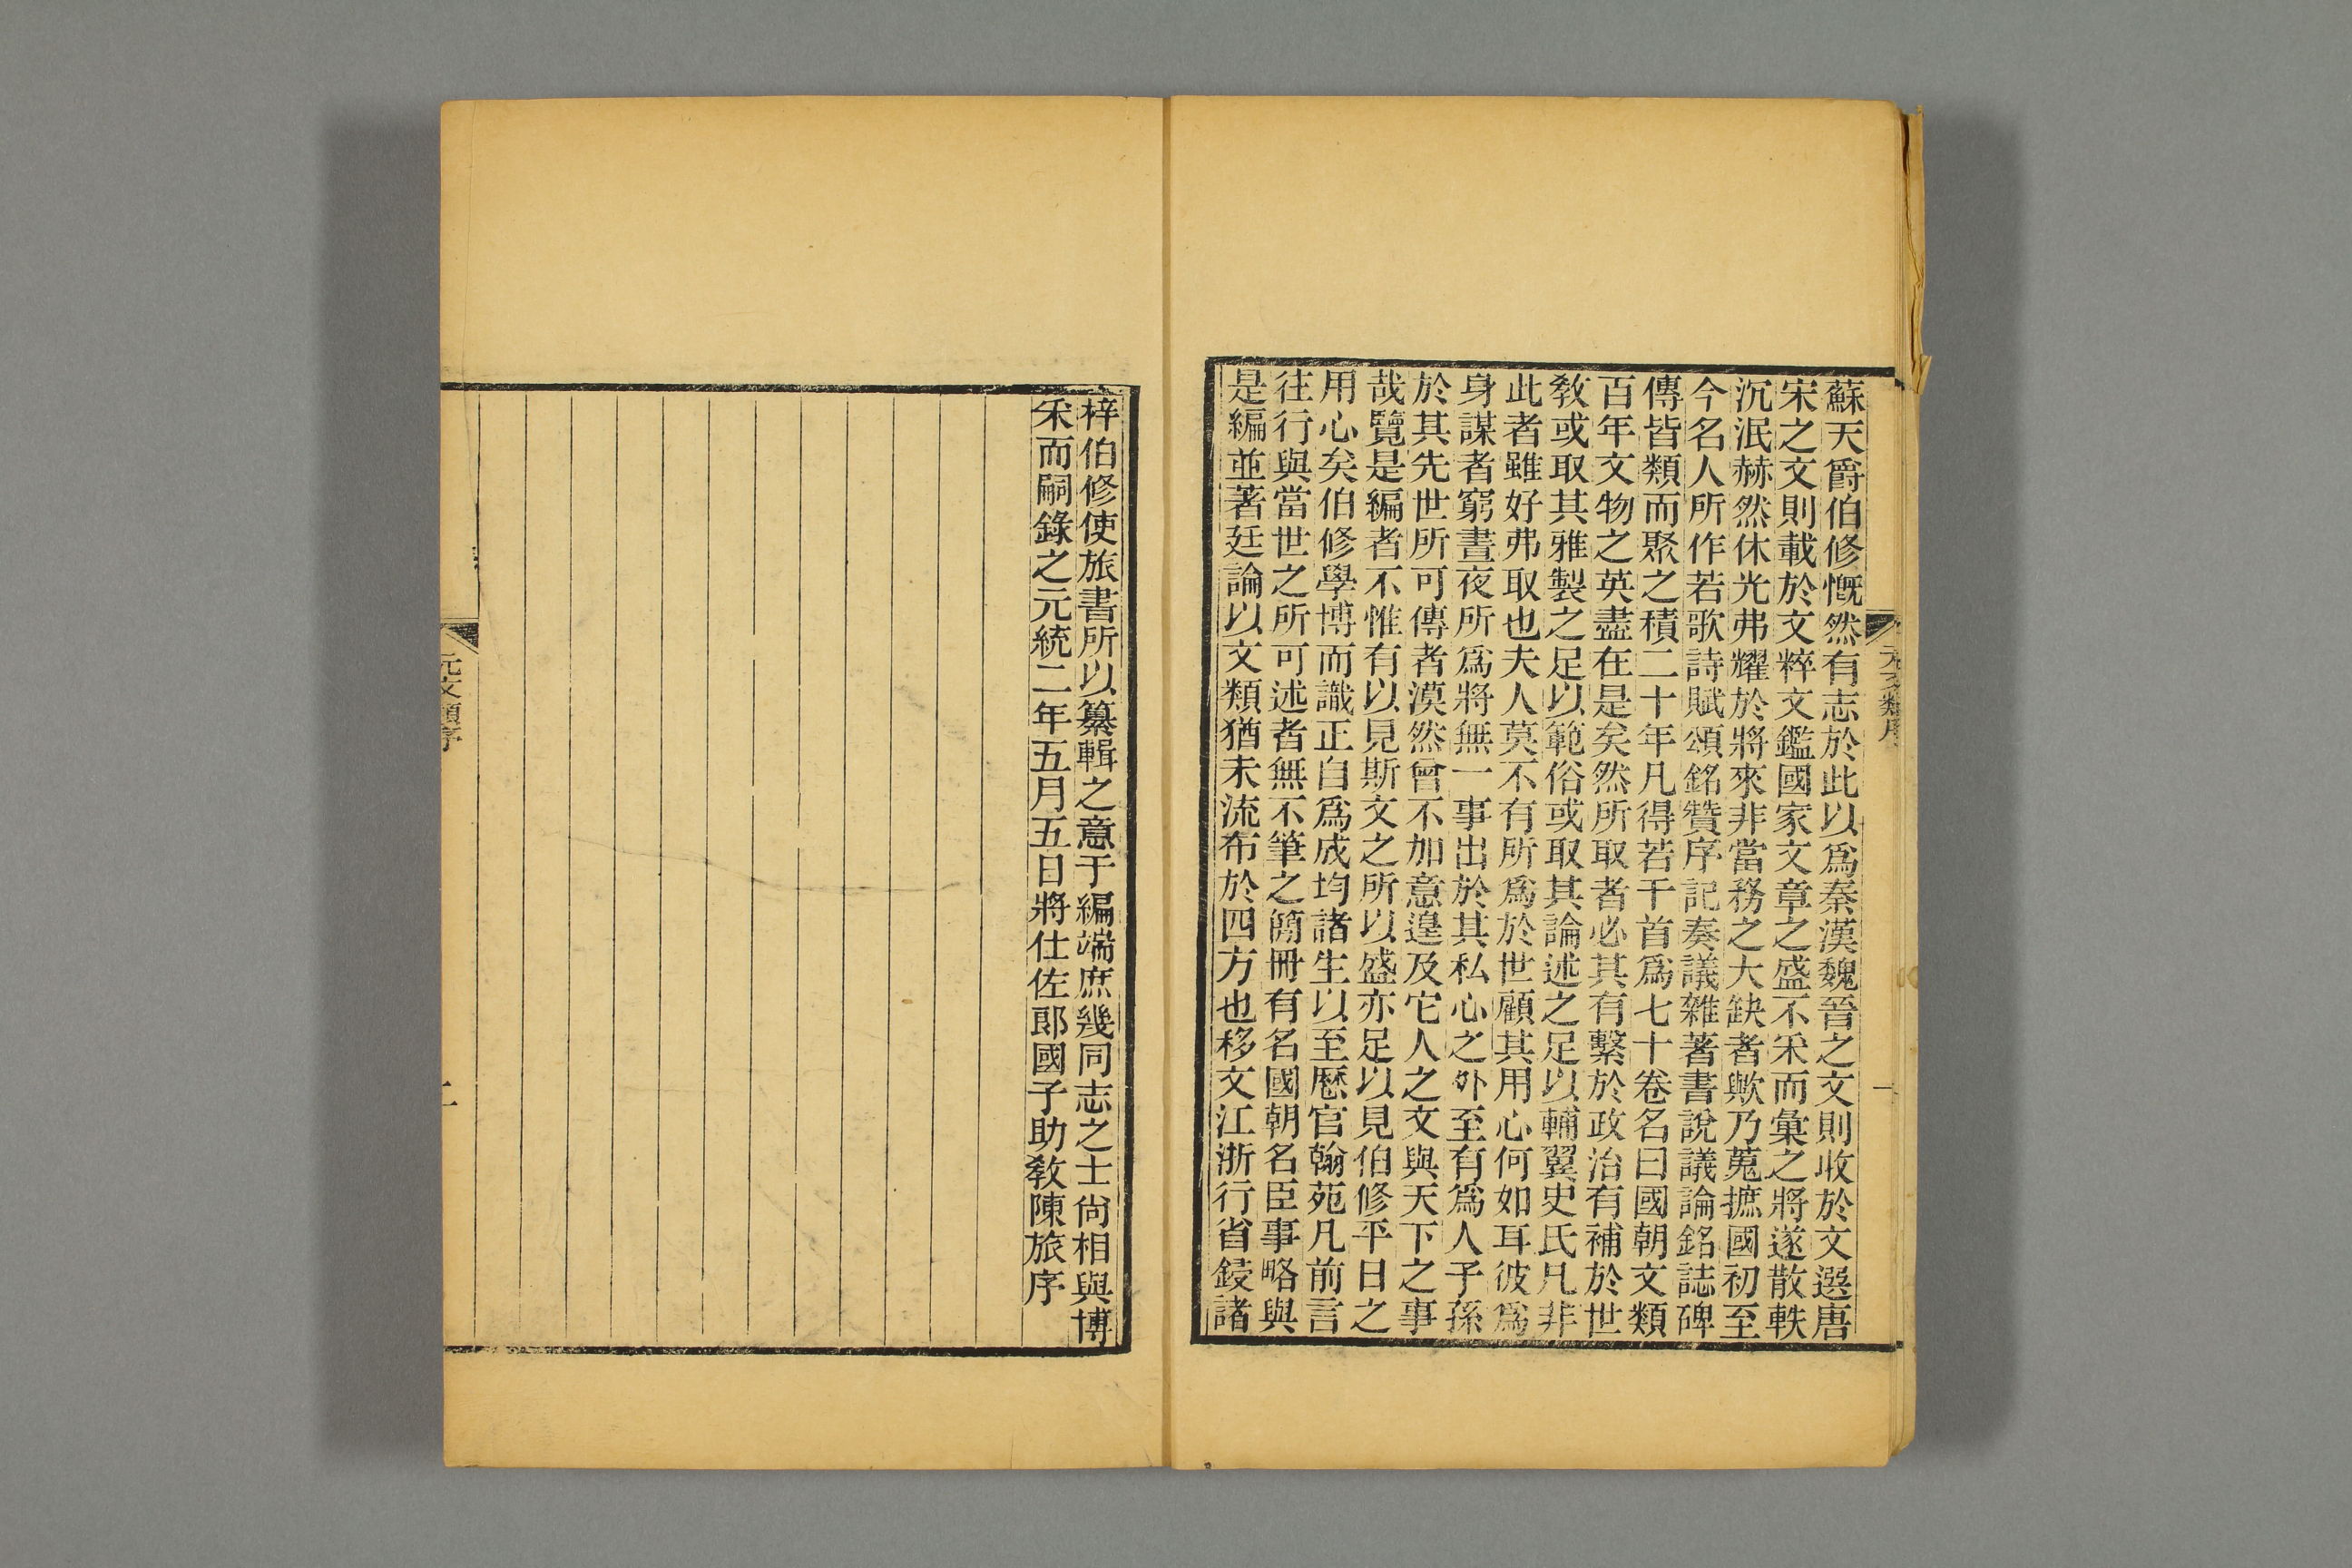 蘇天爵伯修慨然有志於此以爲秦漢魏晉之文則收於文選唐
宋之文則載於文粹文鑑國家文章之盛不釆而彙之將遂散軼
沉泯赫然休光弗耀於將來非當務之大缺者歟乃蒐摭國初至
今名人所作若歌詩賦頌銘贊序記奏議雜著書說議論銘誌碑
傳皆類而聚之積二十年凡得若干首爲七十卷名曰國朝文類
百年文物之英盡在是矣然所取者必其有繫於政治有補於世
敎或取其雅製之足以範俗或取其論述之足以輔翼史氏凡非
此者雖好弗取也夫人莫不有所爲於世顧其用心何如耳彼爲
身謀者窮晝夜所爲將無一事出於其私心之外至有爲人子孫
於其先世所可傳者漠然曾不加意遑及它人之文與天下之事
哉覽是編者不惟有以見斯文之所以盛亦足以見伯修平日之
用心矣伯修學博而識正自爲成均諸生以至歷官翰苑凡前言
往行與當世之所可述者無不筆之簡冊有名國朝名臣事略與
是編並著廷論以文類猶未流布於四方也移文江浙行省鋟諸
元文類序
一
梓伯修使旅書所以纂輯之意于編端庶幾同志之士尙相與博
釆而嗣錄之元統二年五月五日將仕佐郎國子助敎陳旅序
元文類序
二